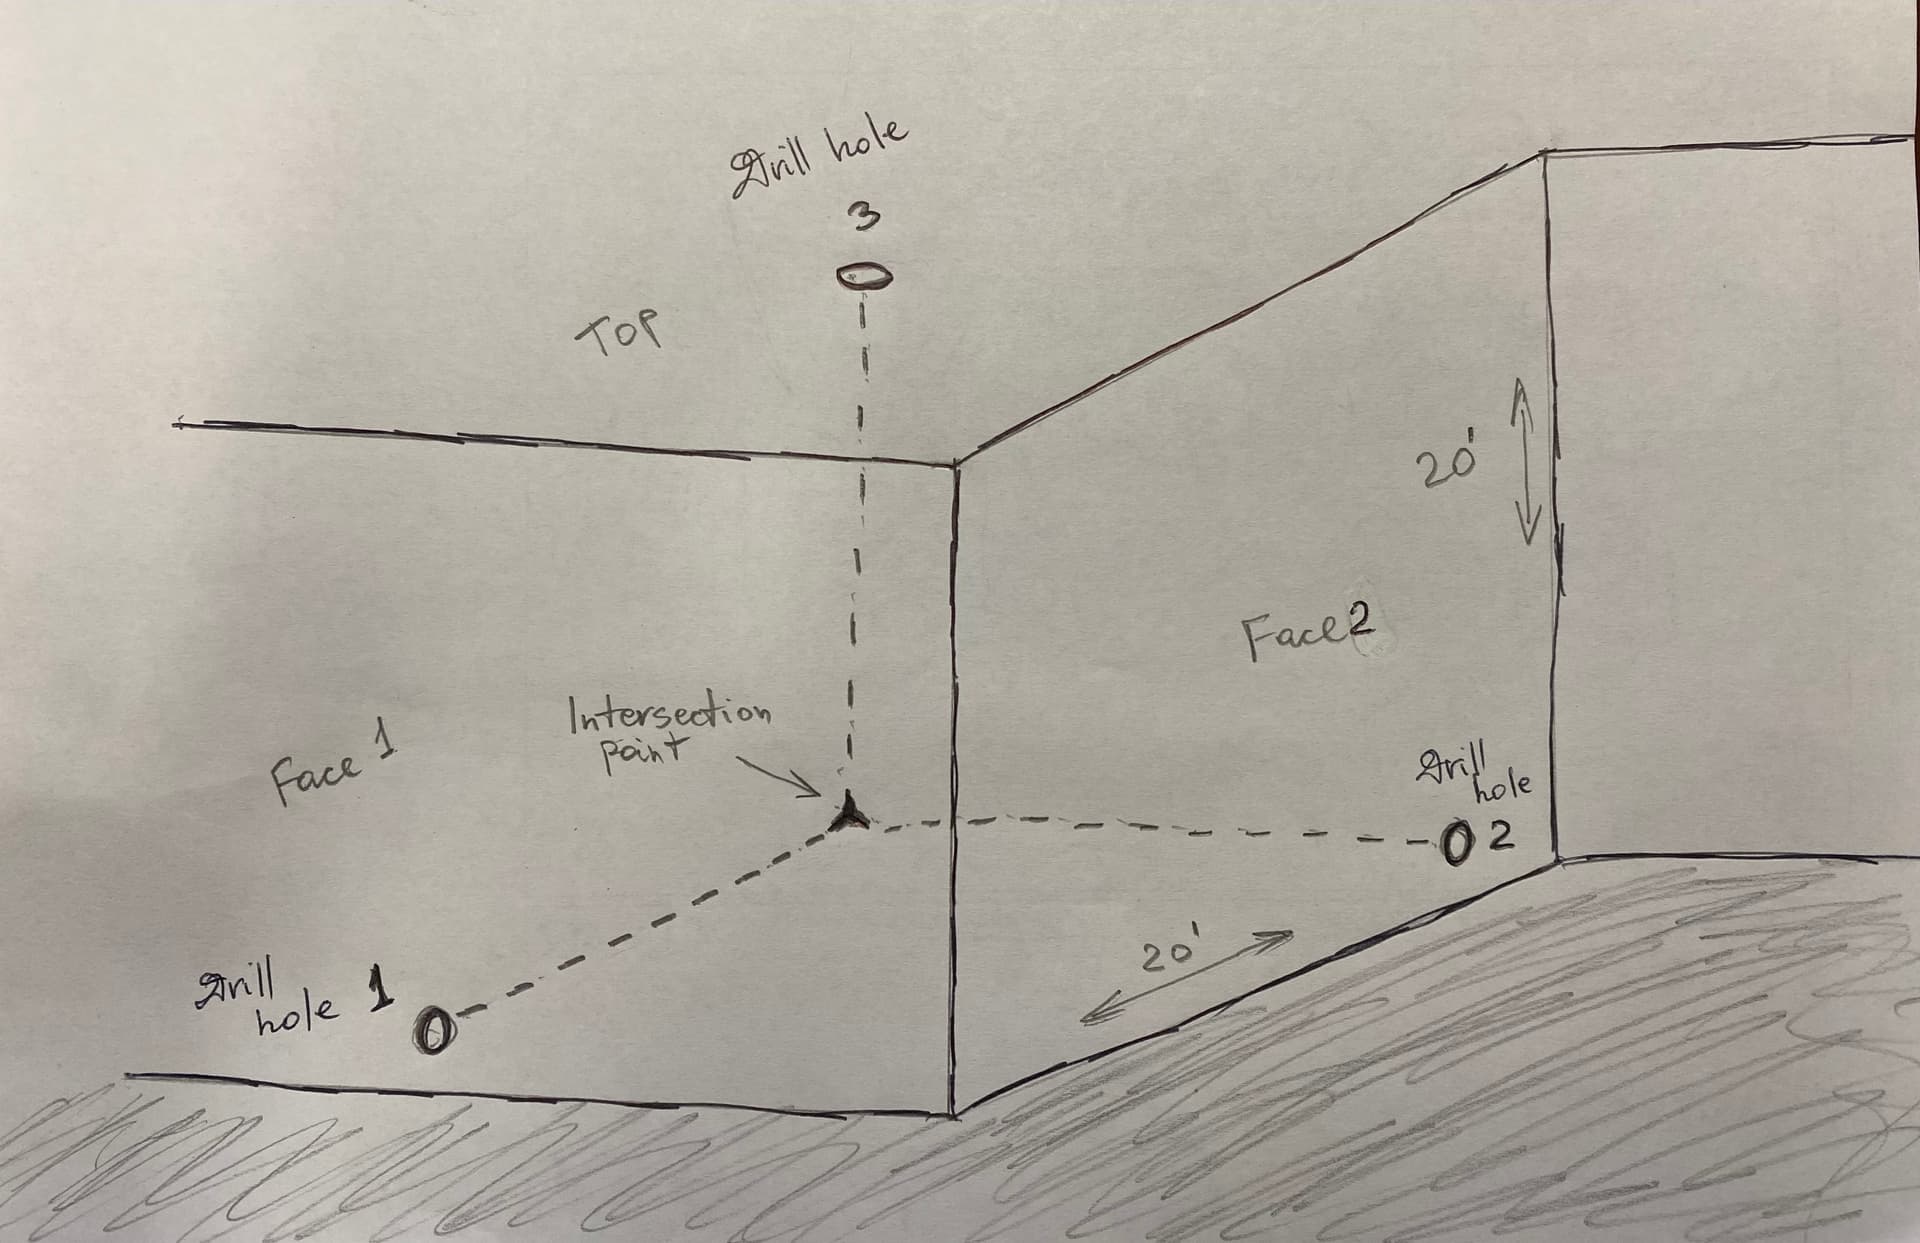 Drill hole
3
TOP
20'
Face 2
Intersection
point
Face 1
Drill
hole 2
20'
Drill
hole 1